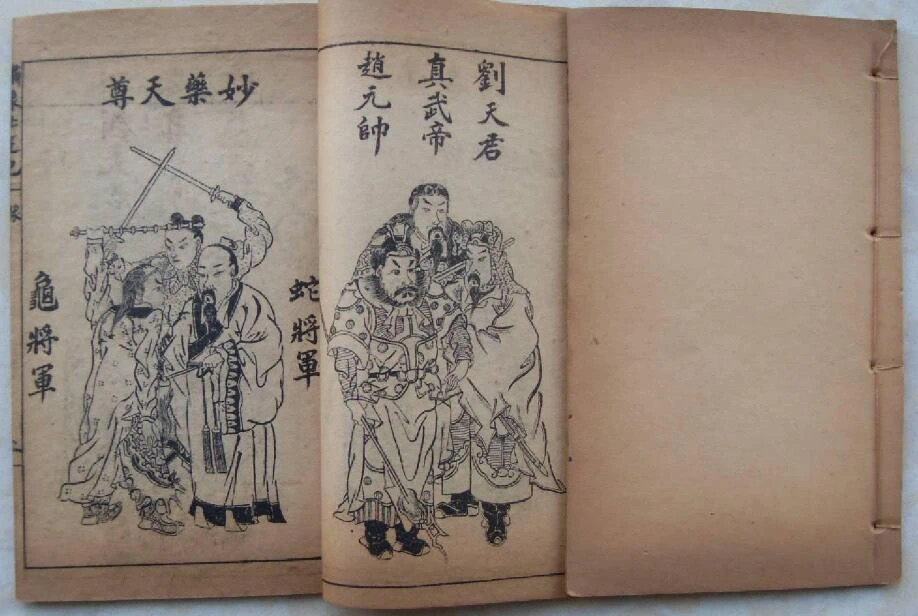 劉天君
真武帝
趙元帥
妙藥天尊
蛇將軍
龜將軍